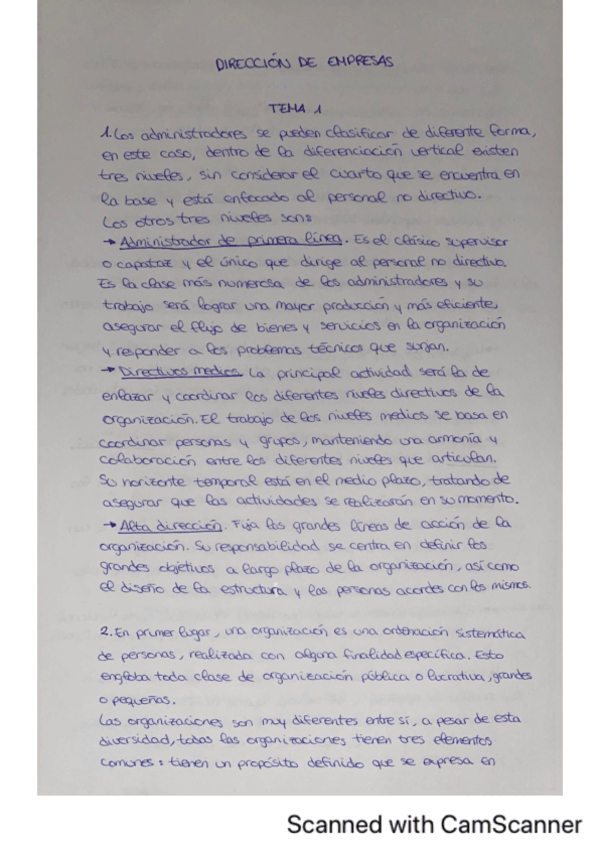 DIRECCIÓN DE EMPRESAS
TEMA 1
1. Los administradores se pueden clasificar de diferente forma,
en este caso, dentro de la diferenciación vertical existen
tres niveles, sin considerar el cuarto que se encuentra en
la base y está enfocado al personal no directivo.
Los otros tres niveles son:
→ Administrador de primera línea. Es el clásico supervisor
o capataz y el único que dirige al personal no directivo.
Es la clase más numerosa de los administradores y su
trabajo será lograr una mayor producción y más eficiente,
asegurar el flujo de bienes y servicios en la organización
y responder a los problemas técnicos que surjan.
→ Directivos medios. La principal actividad será la de
enlazar y coordinar los diferentes niveles directivos de la
organización. El trabajo de los niveles medios se basa en
coordinar personas y grupos, manteniendo una armonía y
colaboración entre los diferentes niveles que articulan.
Su horizonte temporal está en el medio plazo, tratando de
asegurar que las actividades se realizarán en su momento.
→ Alta dirección. Fija las grandes líneas de acción de la
organización. Su responsabilidad se centra en definir los
grandes objetivos a largo plazo de la organización, así como
el diseño de la estructura y las personas acordes con los mismos.
2. En primer lugar, una organización es una ordenación sistemática
de personas, realizada con alguna finalidad específica. Esto
engloba toda clase de organización pública o lucrativa, grandes
o pequeñas.
Las organizaciones son muy diferentes entre sí, a pesar de esta
diversidad, todas las organizaciones tienen tres elementos
comunes: tienen un propósito definido que se expresa en
Scanned with CamScanner